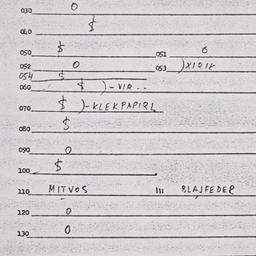 030 0
040 $
050 $ 051 0
052 0 053 )XIRIK
054 $
060 $ )-VIR--
070 $ )-KLEKPAPIRL
080 $
090 0
100 $
110 MITVOS 111 BLAJFEDER
120 0
130 0